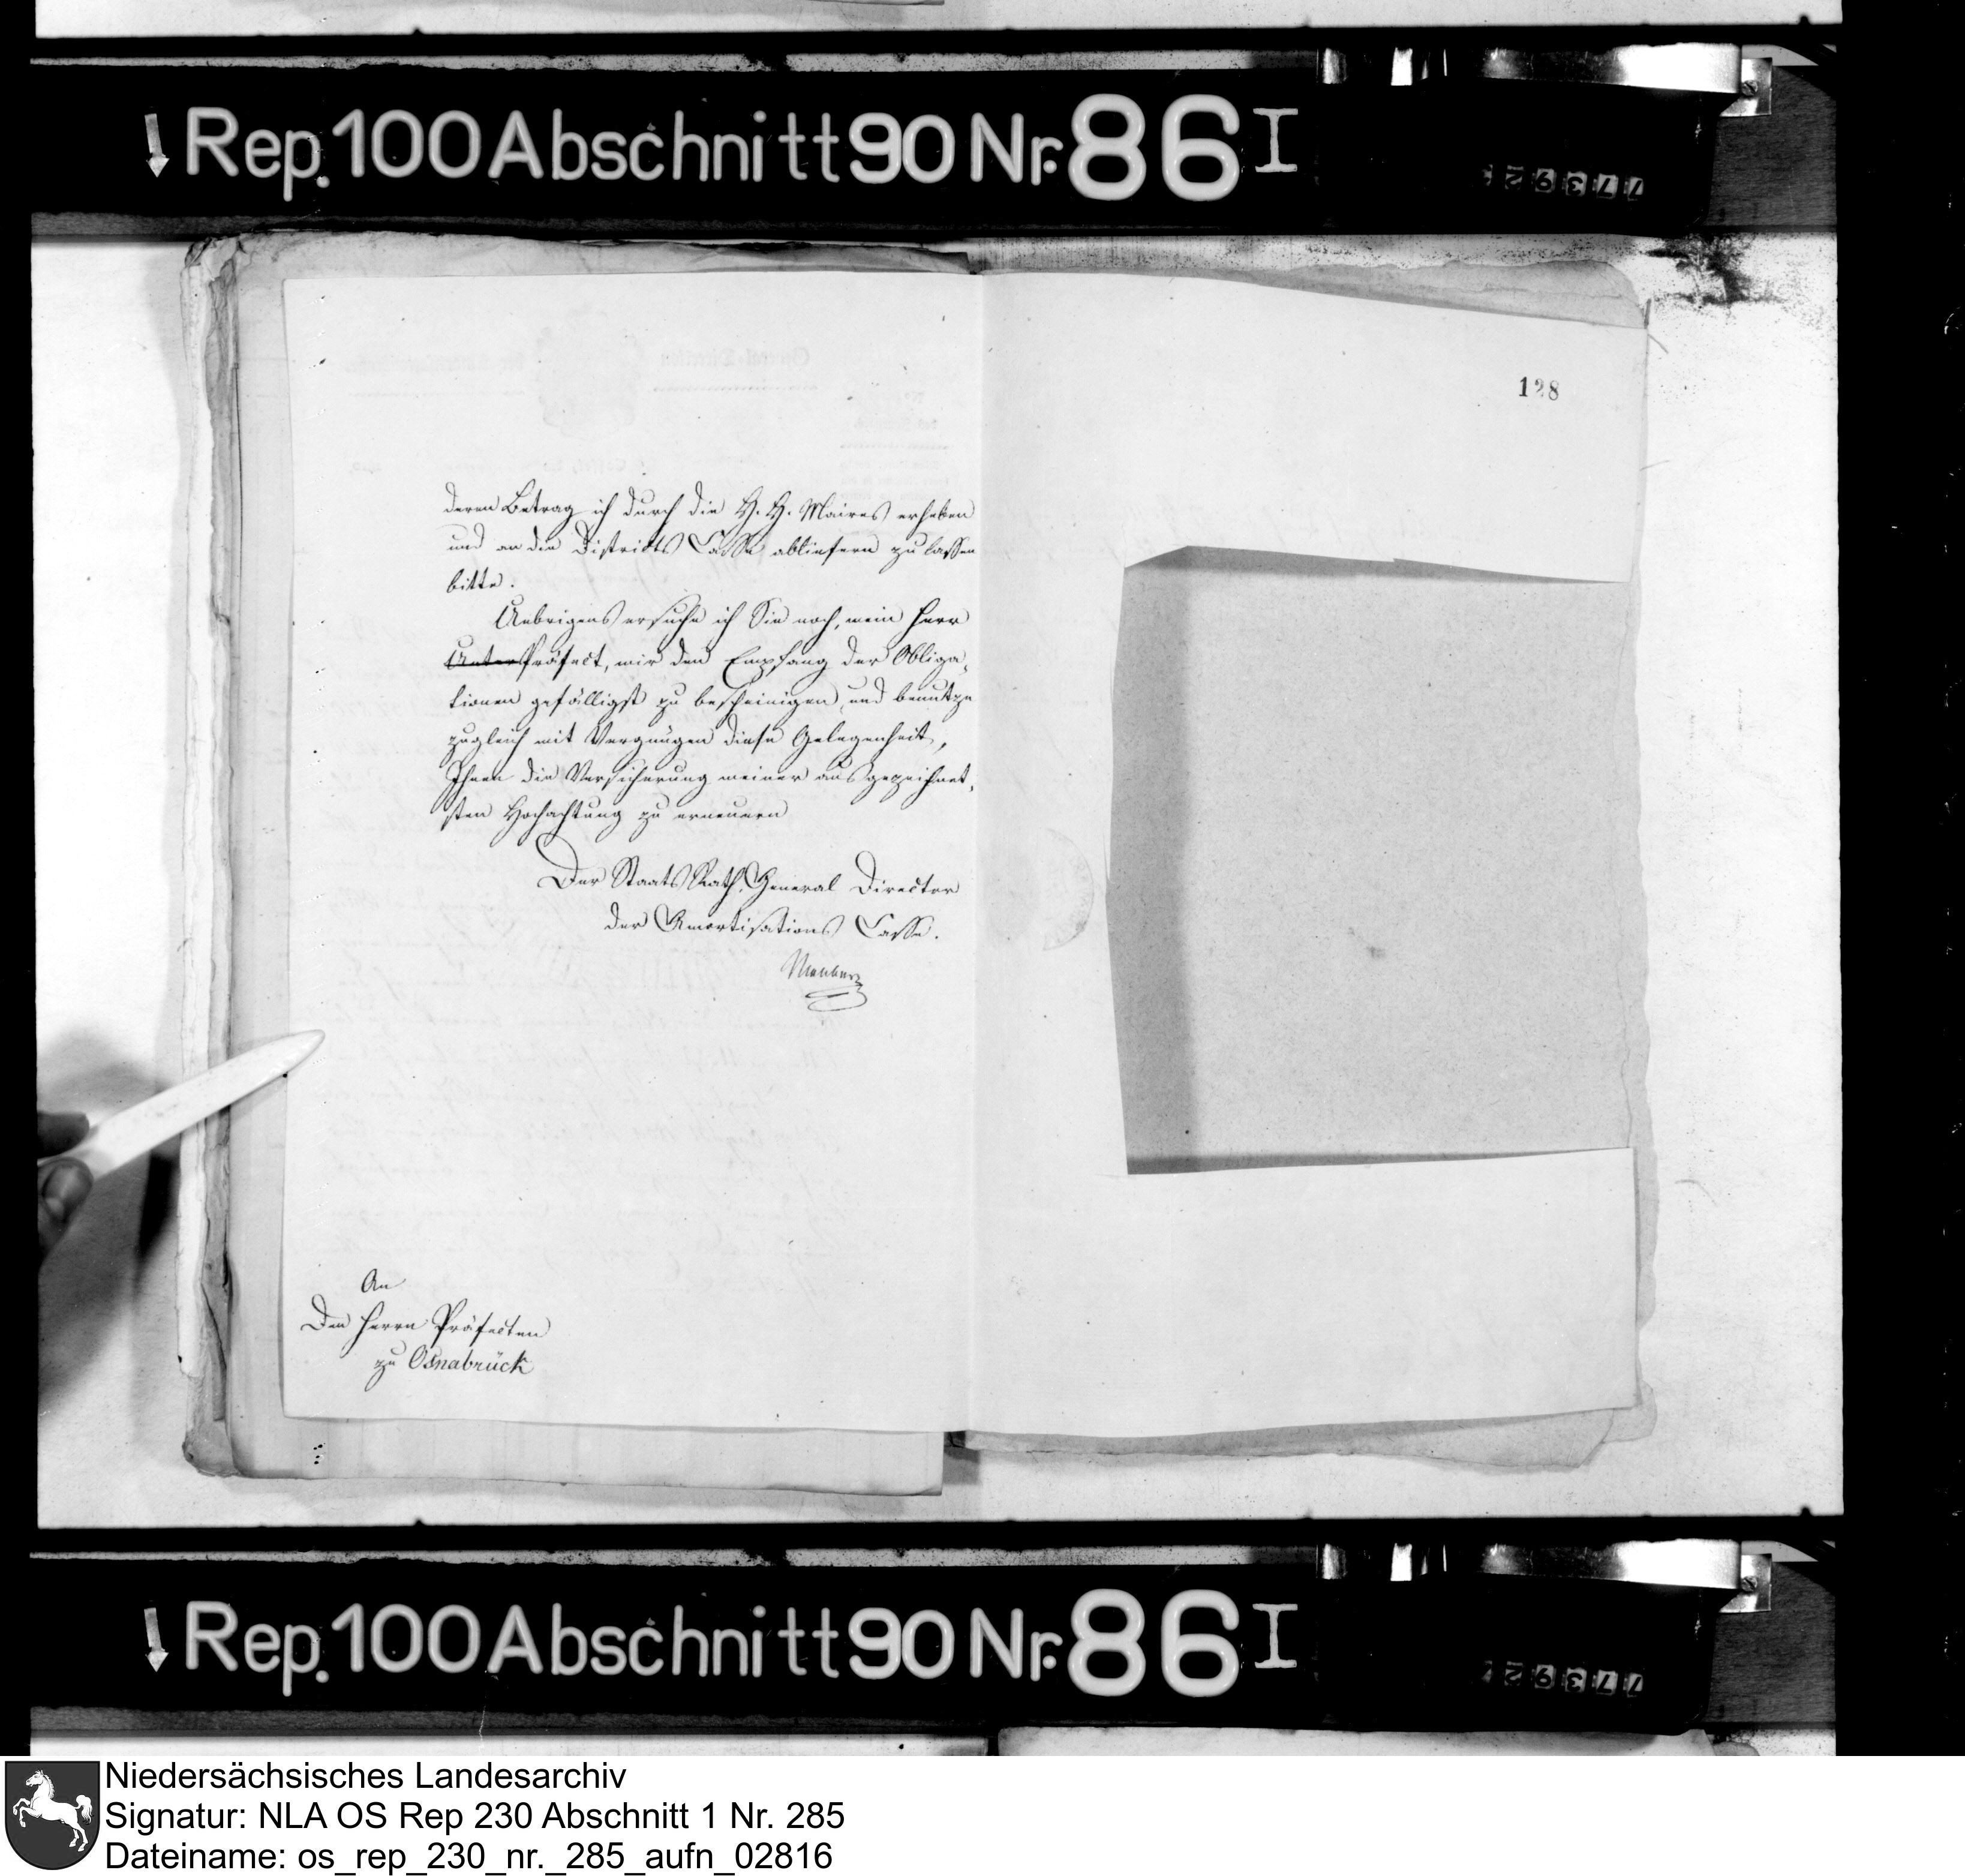 Rep. 100 Abschnitt 90 Nr. 86 I
77392
128
deren Betrag ich durch die H. H. Maires erheben
und an die Districts Casse abliefern zu lassen
bitte.
Uebrigens ersuche ich Sie noch, mein Herr
UnterPräfect, mir den Empfang der Obliga,
tionen gefälligst zu bescheinigen, und benutze
zugleich mit Vergnügen diese Gelegenheit,
Ihnen die Versicherung meiner ausgezeichnet,
sten Hochachtung zu erneuern
Der Staats Rath, General Director
der Amortisations Casse.
An
Den Herrn Präfecten
zu Osnabrück
Rep. 100 Abschnitt 90 Nr. 86 I
77392
Niedersächsisches Landesarchiv
Signatur: NLA OS Rep 230 Abschnitt 1 Nr. 285
Dateiname: os_rep_230_nr._285_aufn_02816